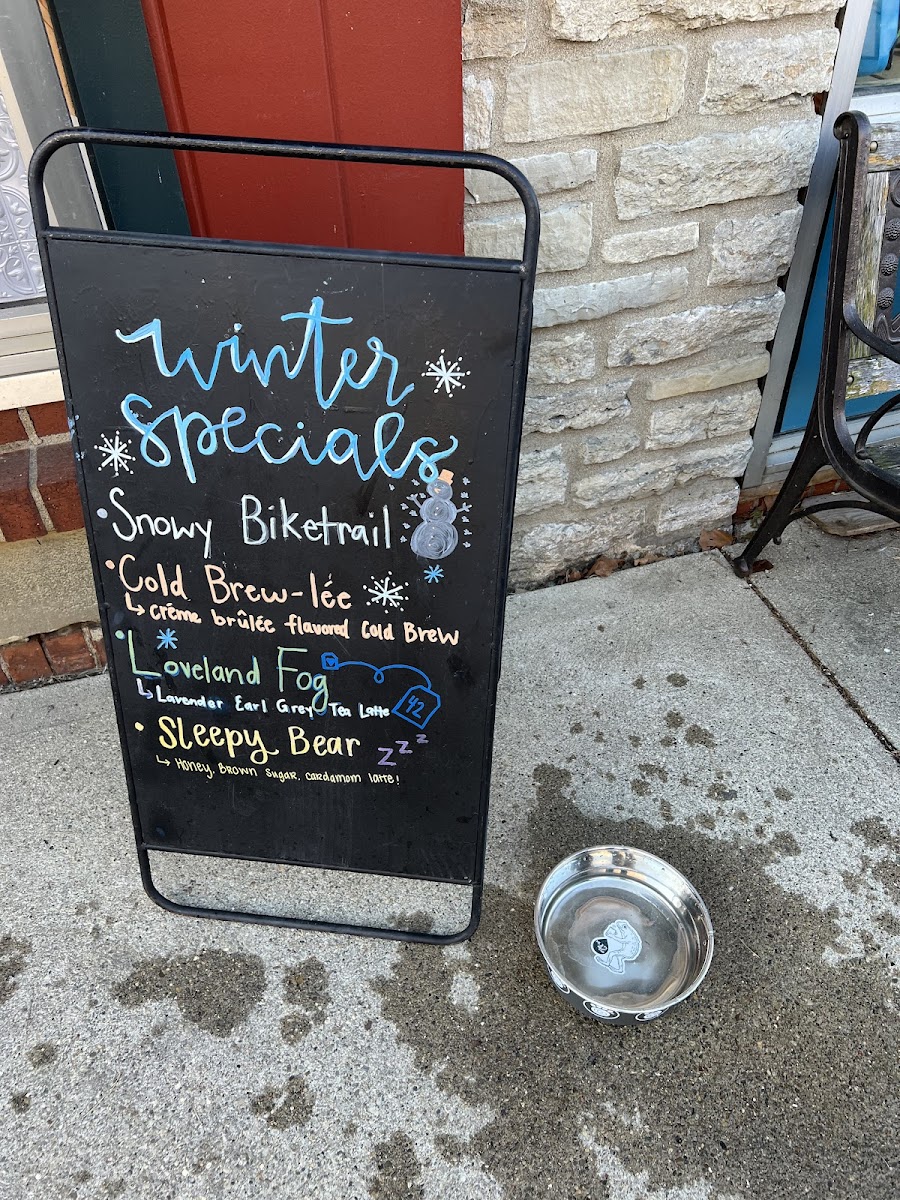 winter
specials
• Snowy Biketrail
• Cold Brew-lée
↳ créme brûlée flavored Cold Brew
• Loveland Fog
↳ Lavender Earl Grey Tea Latte
42
• Sleepy Bear zzz
↳ Honey, Brown Sugar, Cardamom latte!